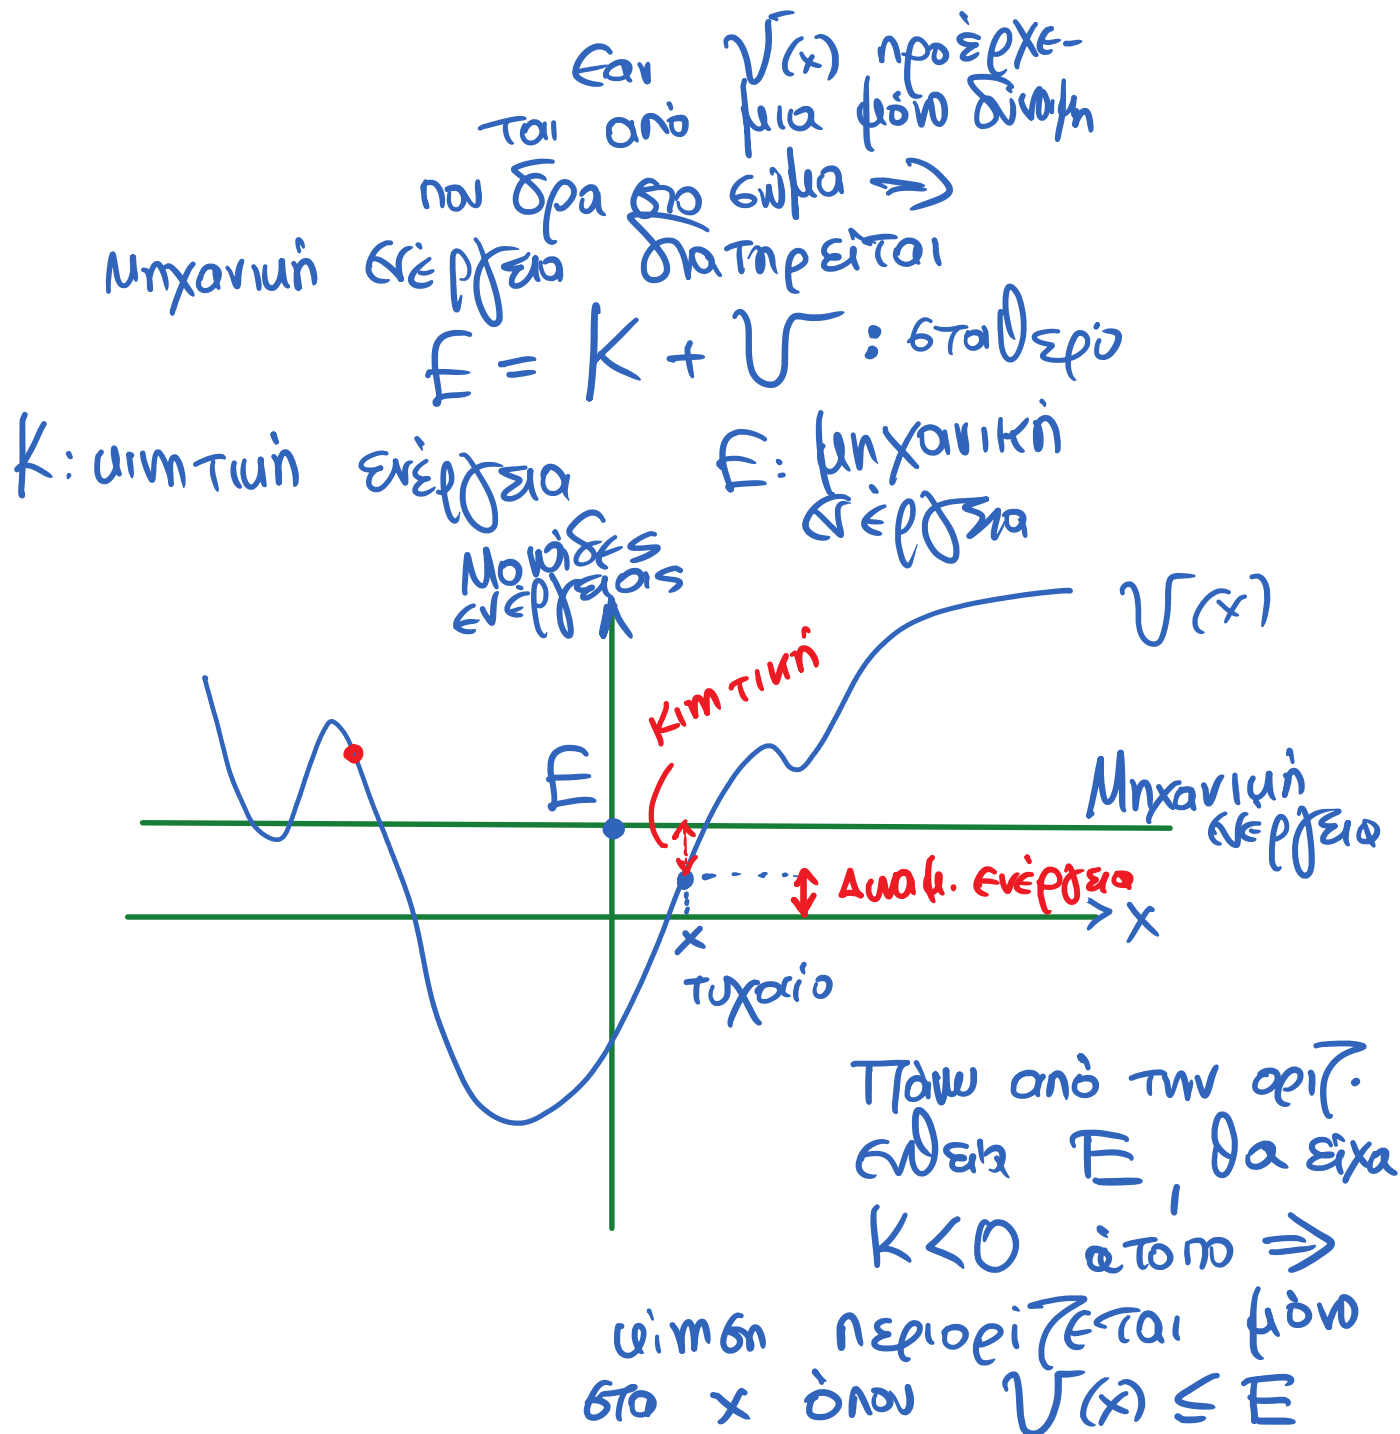 Εαν U(x) προέρχε-
ται από μια μόνο δύναμη
που δρα στο σώμα ⇒
Μηχανική ενέργεια διατηρείται
E = K + U : σταθερό
K: κινητική ενέργεια
E: μηχανική
ενέργεια
Μονάδες
ενέργειας
U(x)
κινητική
E
Μηχανική
ενέργεια
Δυναμ. ενέργεια
x
x
τυχαίο
Πάνω από την οριζ.
ευθεία E, θα είχα
K<0 άτοπο ⇒
κίνηση περιορίζεται μόνο
στα x όπου U(x) ≤ E